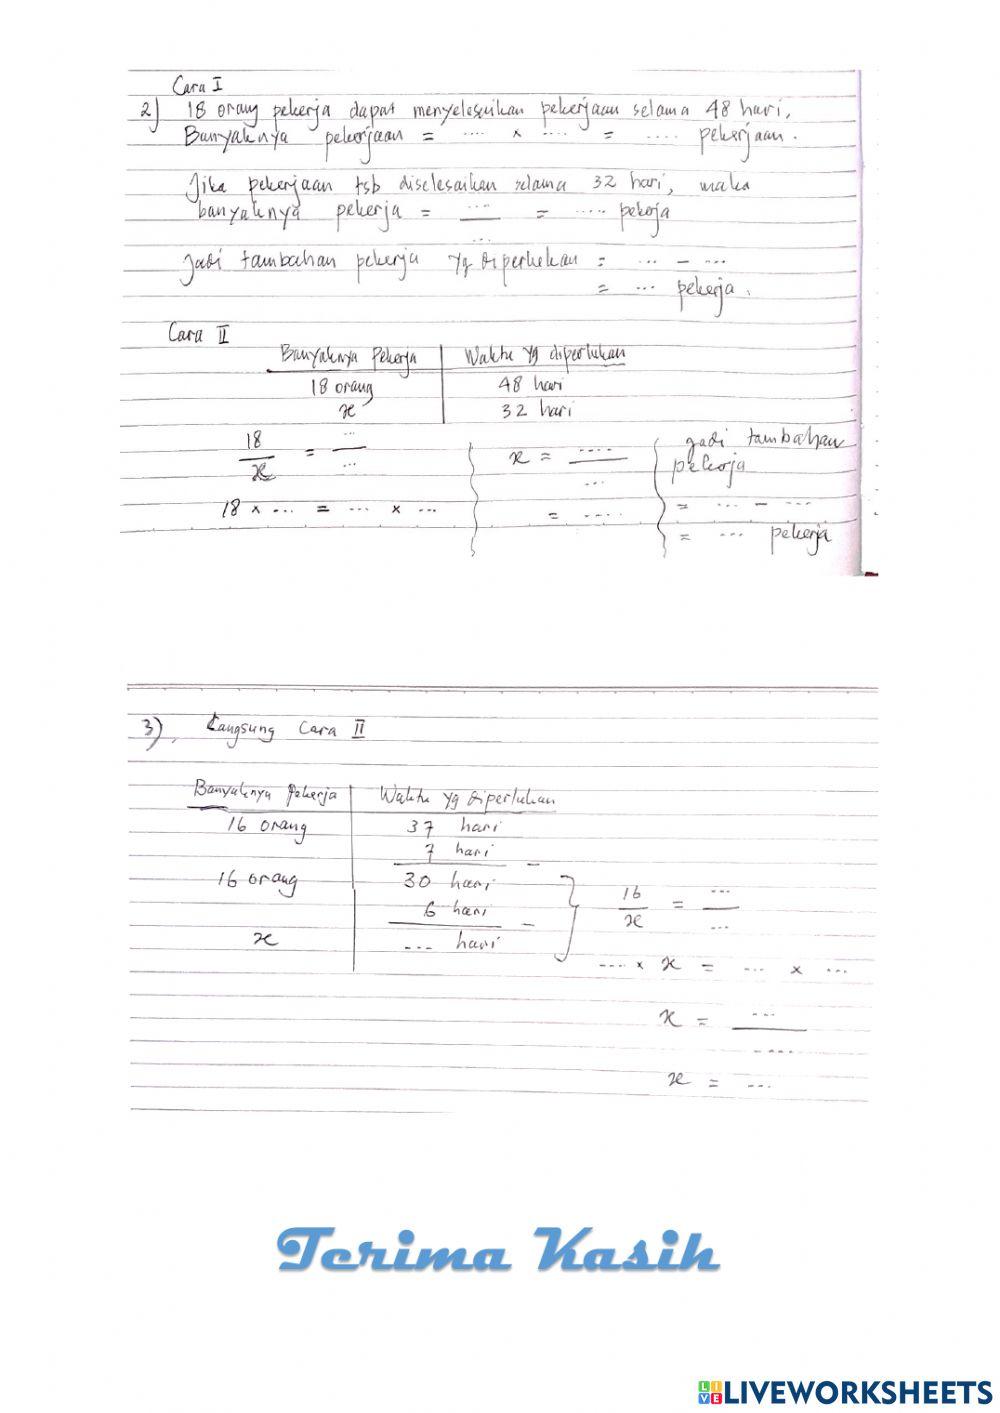 Cara I
2) 18 orang pekerja dapat menyelesaikan pekerjaan selama 48 hari,
Banyaknya pekerjaan = .... × .... = .... pekerjaan.
Jika pekerjaan tsb diselesaikan selama 32 hari, maka
banyaknya pekerja = ___ = .... pekerja
...
Jadi tambahan pekerja yg diperlukan = ... – ...
= ... pekerja.
Cara II
Banyaknya Pekerja Waktu yg diperlukan
18 orang 48 hari
x 32 hari
18/x = .../... x = ..../... Jadi tambahan
pekerja
18 × ... = ... × ... = .... = ... – ...
= ... pekerja
3). Langsung Cara II
Banyaknya Pekerja Waktu yg diperlukan
16 orang 37 hari
7 hari –
16 orang 30 hari
6 hari –
x ... hari
16/x = .../...
.... × x = ... × ...
x = .../....
x = ...
Terima Kasih
LIVEWORKSHEETS